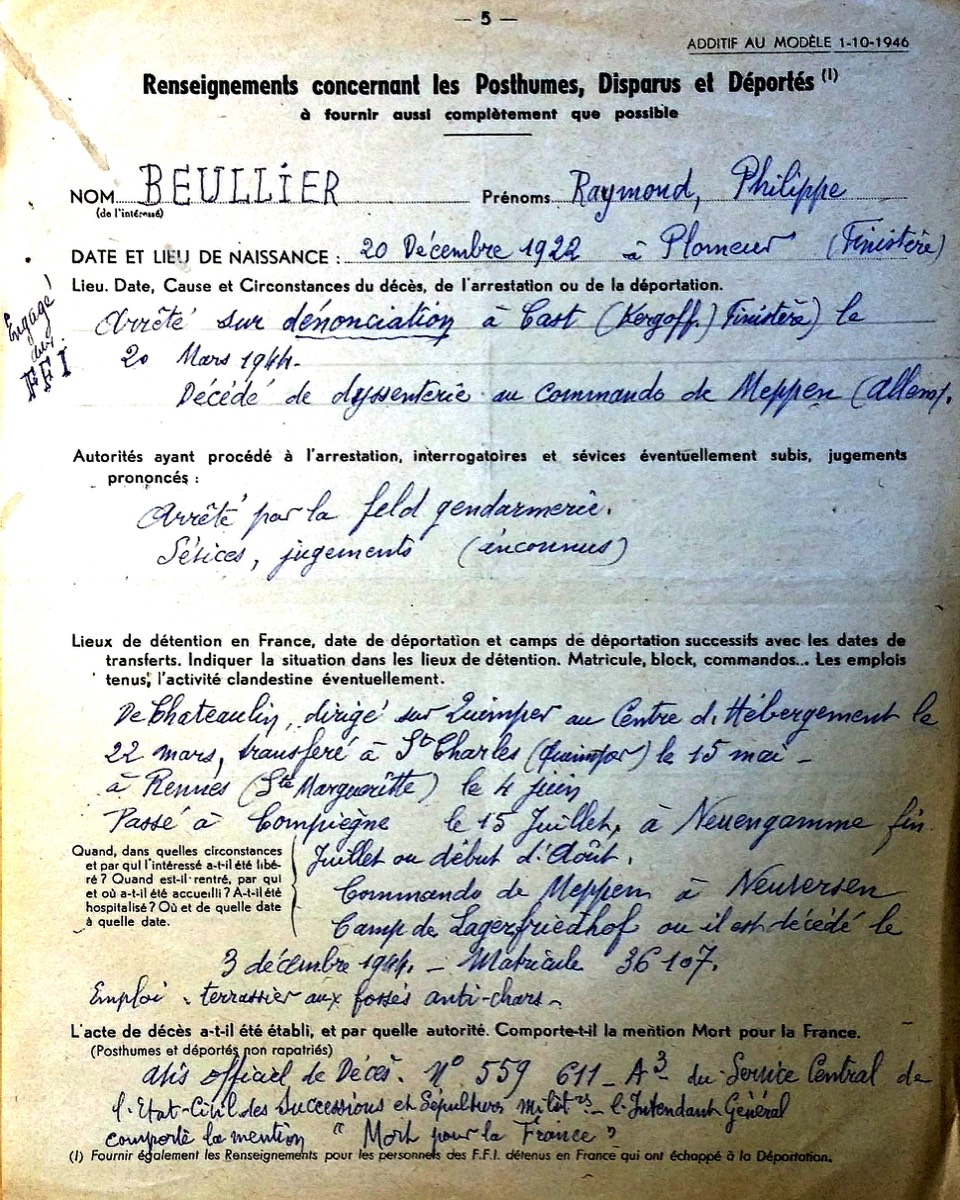 — 5 —
ADDITIF AU MODÈLE 1-10-1946
Renseignements concernant les Posthumes, Disparus et Déportés (1)
à fournir aussi complètement que possible
NOM BEULLIER Prénoms Raymond, Philippe
(de l'intéressé)
DATE ET LIEU DE NAISSANCE : 20 Décembre 1922 à Plomeur (Finistère)
Lieu. Date, Cause et Circonstances du décès, de l'arrestation ou de la déportation.
Engagé
aux
FFI
Arrêté sur dénonciation à Cast (Kergoff.) Finistère) le
20 Mars 1944-
Décédé de dyssenterie au commando de Meppen (Allem).
Autorités ayant procédé à l'arrestation, interrogatoires et sévices éventuellement subis, jugements
prononcés :
Arrêté par la feld gendarmerie.
Sévices, jugements (inconnus)
Lieux de détention en France, date de déportation et camps de déportation successifs avec les dates de
transferts. Indiquer la situation dans les lieux de détention. Matricule, block, commandos... Les emplois
tenus, l'activité clandestine éventuellement.
De Chateaulin, dirigé sur Quimper au Centre d'Hébergement le
22 mars, transféré à St Charles (Quimper) le 15 mai -
à Rennes (Ste Margueritte) le 4 juin
Passé à Compiègne le 15 Juillet, à Neuengamme fin
Juillet ou début d'Août.
Quand, dans quelles circonstances
et par qui l'intéressé a-t-il été libé-
ré ? Quand est-il rentré, par qui
et où a-t-il été accueilli ? A-t-il été
hospitalisé ? Où et de quelle date
à quelle date.
Commando de Meppen à Neuversen
Camp de Lagerfriedhof ou il est décédé le
3 décembre 1944. - Matricule 36107.
Emploi : terrassier aux fossés anti-chars -
L'acte de décès a-t-il été établi, et par quelle autorité. Comporte-t-il la mention Mort pour la France.
(Posthumes et déportés non rapatriés)
Avis officiel de Décès. N° 559 611 - A3 - du Service Central de
l'Etat-Civil des Successions et Sépultures milit res - l'Intendant Général
comporte la mention "Mort pour la France"
(1) Fournir également les Renseignements pour les personnels des F.F.I. détenus en France qui ont échappé à la Déportation.